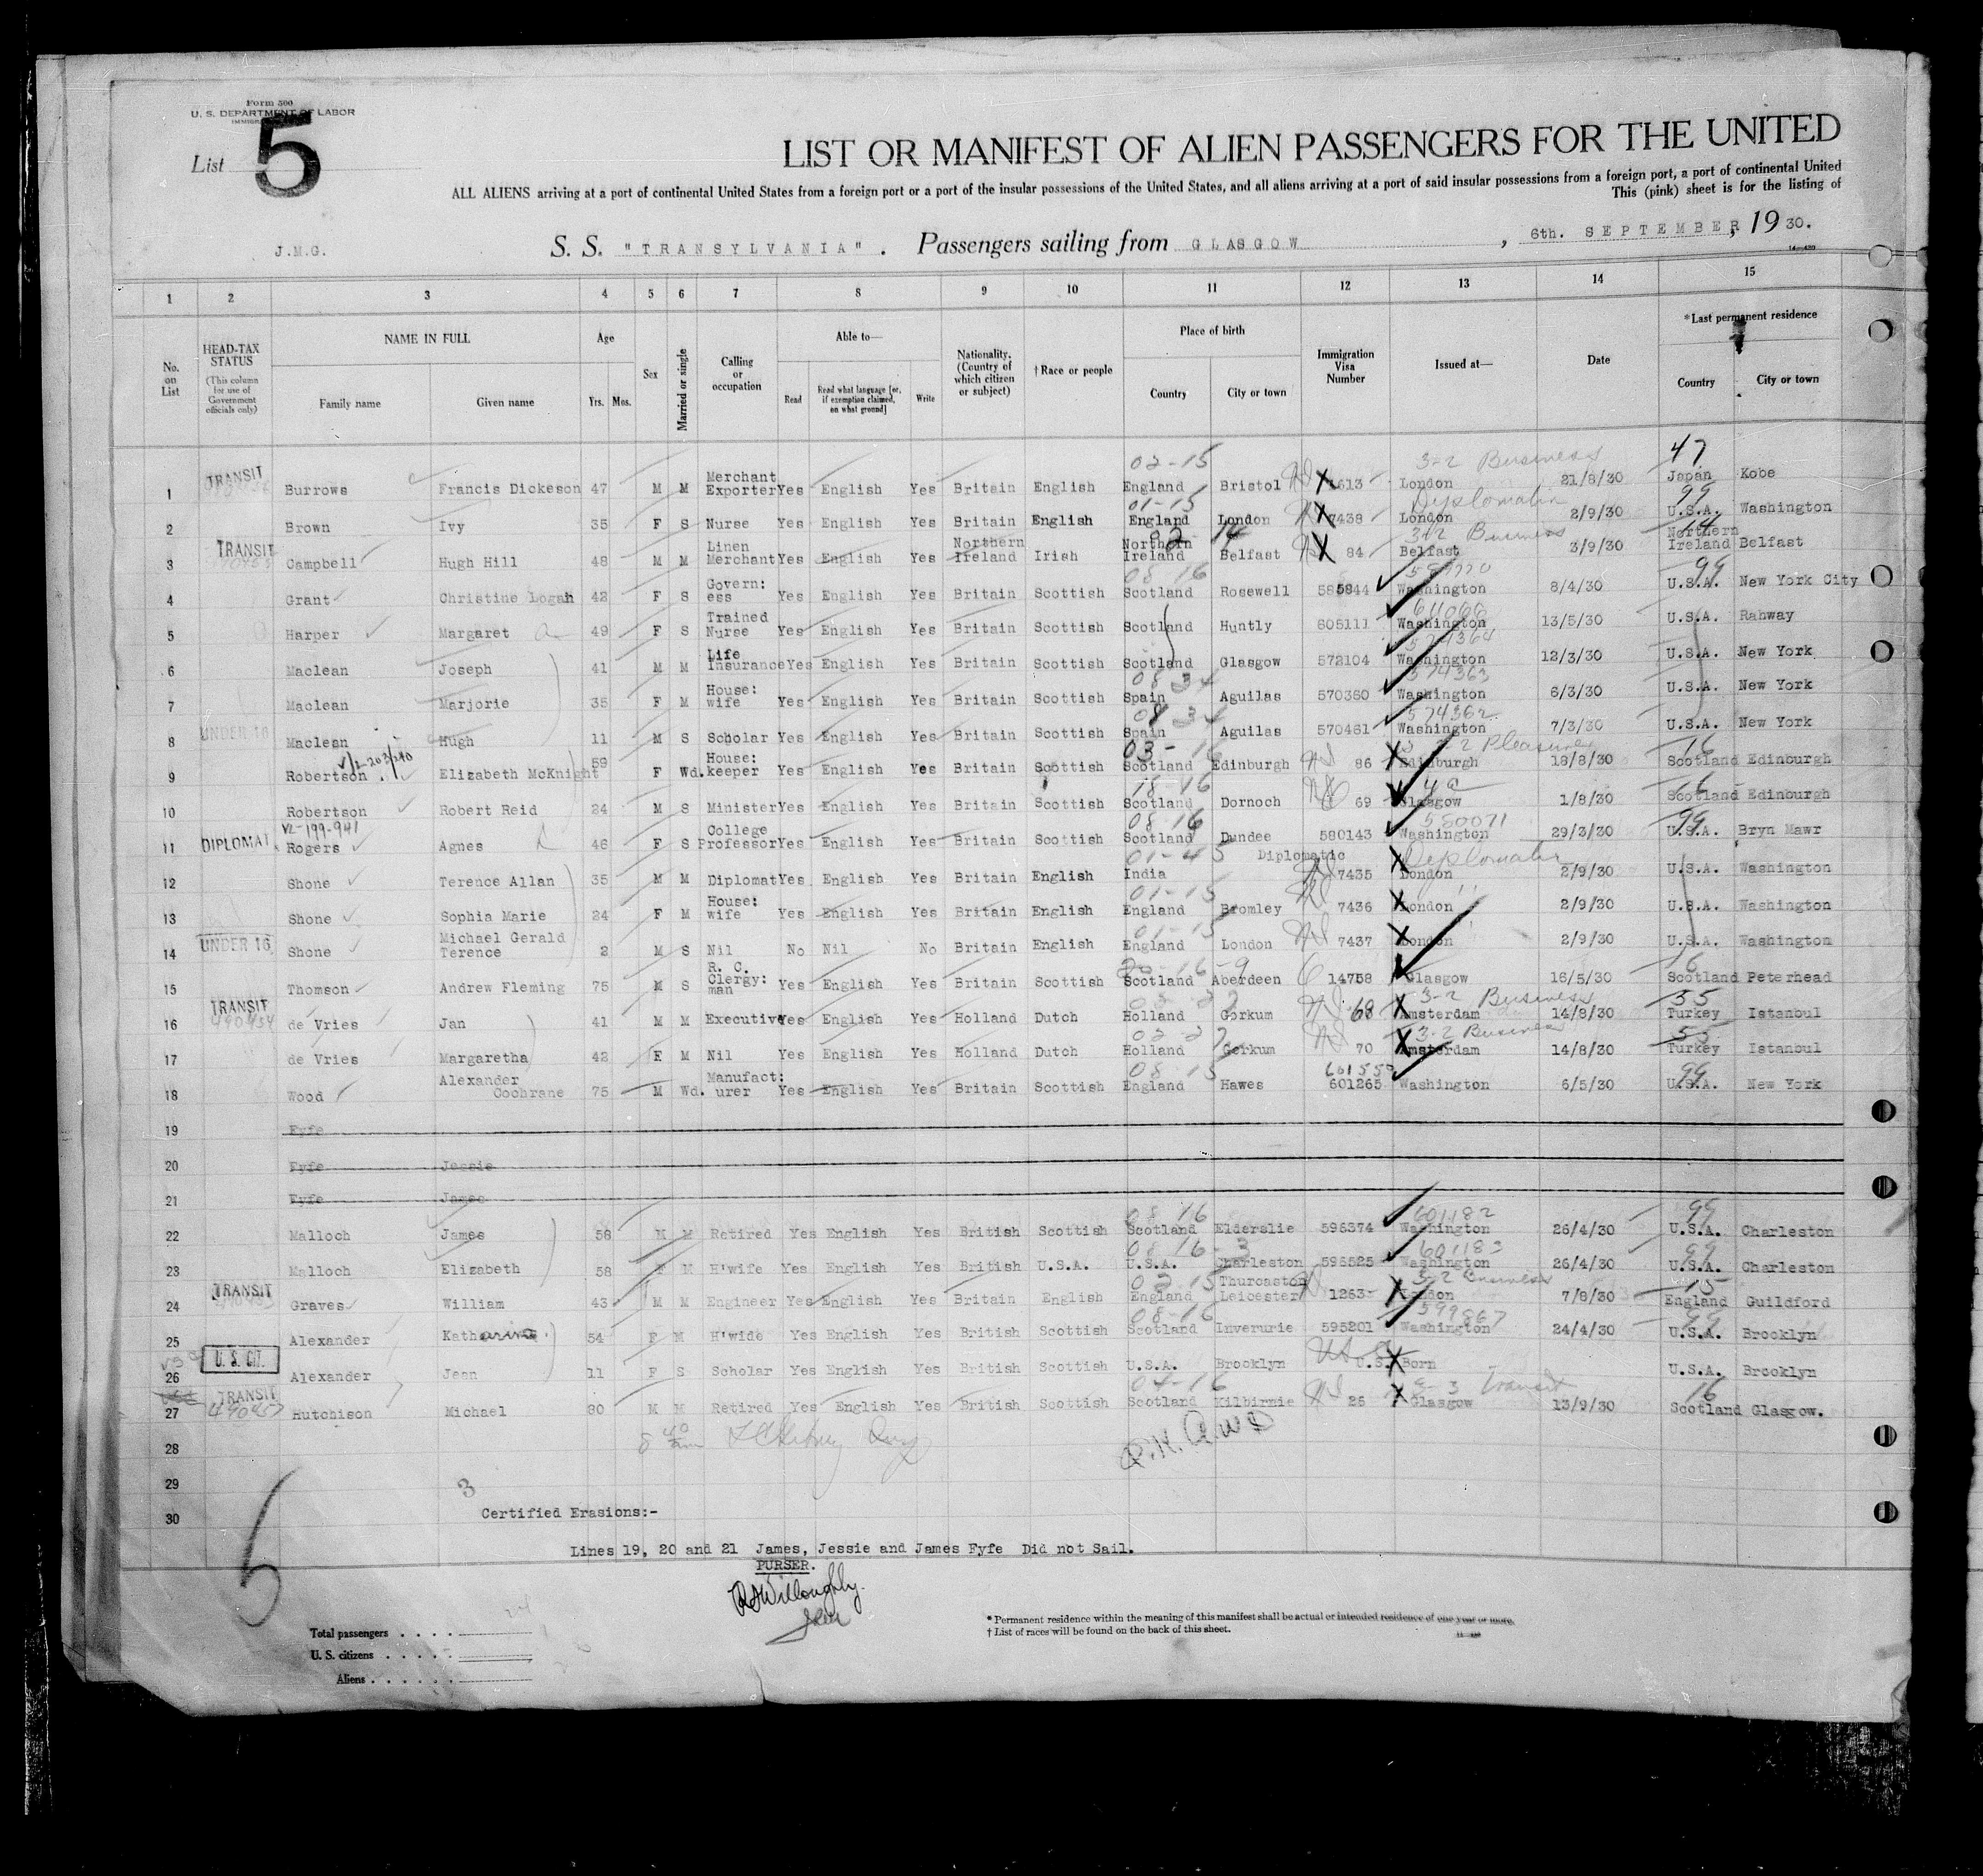 Form 500
U. S. DEPARTMENT OF LABOR
List 5
LIST OR MANIFEST OF ALIEN PASSENGERS FOR THE UNITED
ALL ALIENS arriving at a port of continental United States from a foreign port or a port of the insular possessions of the United States, and all aliens arriving at a port of said insular possessions from a foreign port, a port of continental United
This (pink) sheet is for the listing of
J.M.G. S. S. "TRANSYLVANIA". Passengers sailing from GLASGOW, 6th. SEPTEMBER, 19 30.
1 2 3 4 5 6 7 8 9 10 11 12 13 14 15
No. on List
HEAD-TAX STATUS
(This column for use of Government officials only)
NAME IN FULL
Family name Given name
Age
Yrs. Mos.
Sex
Married or single
Calling or occupation
Able to—
Read
Read what language [or, if exemption claimed, on what ground]
Write
Nationality. (Country of which citizen or subject)
†Race or people
Place of birth
Country City or town
Immigration Visa Number
Issued at—
Date
*Last permanent residence
Country City or town
02-15 3-2 Business 47
1 TRANSIT Burrows Francis Dickeson 47 M M Merchant Exporter Yes English Yes Britain English England Bristol 1613 London 21/8/30 Japan Kobe
01-15 Diplomatic 99
2 Brown Ivy 35 F S Nurse Yes English Yes Britain English England London 7438 London 2/9/30 U.S.A. Washington
3-2 Business 14
3 TRANSIT Campbell Hugh Hill 48 M M Linen Merchant Yes English Yes Northern Ireland Irish Northern Ireland Belfast 84 Belfast 3/9/30 Northern Ireland Belfast
08-16 99
4 Grant Christine Logan 42 F S Govern: ess Yes English Yes Britain Scottish Scotland Rosewell 585844 Washington 8/4/30 U.S.A. New York City
611066
5 Harper Margaret 49 F S Trained Nurse Yes English Yes Britain Scottish Scotland Huntly 605111 Washington 13/5/30 U.S.A. Rahway
574364
6 Maclean Joseph 41 M M Life Insurance Yes English Yes Britain Scottish Scotland Glasgow 572104 Washington 12/3/30 U.S.A. New York
08 34 574363
7 Maclean Marjorie 35 F M House: wife Yes English Yes Britain Scottish Spain Aguilas 570380 Washington 6/3/30 U.S.A. New York
08 34 574362
8 UNDER 16 Maclean Hugh 11 M S Scholar Yes English Yes Britain Scottish Spain Aguilas 570461 Washington 7/3/30 U.S.A. New York
03-16 3-2 Pleasure 16
9 Robertson Elizabeth McKnight 59 F Wd. House: keeper Yes English Yes Britain Scottish Scotland Edinburgh 86 Edinburgh 18/8/30 Scotland Edinburgh
18-16 16
10 Robertson Robert Reid 24 M S Minister Yes English Yes Britain Scottish Scotland Dornoch 69 Glasgow 1/8/30 Scotland Edinburgh
V2-199-941 08-16 580071 99
11 DIPLOMAT Rogers Agnes 46 F S College Professor Yes English Yes Britain Scottish Scotland Dundee 580143 Washington 29/3/30 U.S.A. Bryn Mawr
01-45 Diplomatic Diplomatic
12 Shone Terence Allan 35 M M Diplomat Yes English Yes Britain English India 7435 London 2/9/30 U.S.A. Washington
01-15
13 Shone Sophia Marie 24 F M House: wife Yes English Yes Britain English England Bromley 7436 London 2/9/30 U.S.A. Washington
01-15
14 UNDER 16 Shone Michael Gerald Terence 2 M S Nil No Nil No Britain English England London 7437 London 2/9/30 U.S.A. Washington
15 Thomson Andrew Fleming 75 M S R. C. Clergy: man Yes English Yes Britain Scottish Scotland Aberdeen 14758 Glasgow 16/5/30 Scotland Peterhead
3-2 Business 55
16 TRANSIT 490454 de Vries Jan 41 M M Executive Yes English Yes Holland Dutch Holland Gorkum 68 Amsterdam 14/8/30 Turkey Istanbul
02-27 3-2 Business 55
17 de Vries Margaretha 42 F M Nil Yes English Yes Holland Dutch Holland Gorkum 70 Amsterdam 14/8/30 Turkey Istanbul
08-15 99
18 Wood Alexander Cochrane 75 M Wd. Manufact: urer Yes English Yes Britain Scottish England Hawes 601265 Washington 6/5/30 U.S.A. New York
19 Fyfe
20 Fyfe Jessie
21 Fyfe James
08 16 601182 99
22 Malloch James 56 M M Retired Yes English Yes British Scottish Scotland Elderslie 596374 Washington 26/4/30 U.S.A. Charleston
08 16-3 601183 99
23 Malloch Elizabeth 58 F M H'wife Yes English Yes British U.S.A. U.S.A. Charleston 596525 Washington 26/4/30 U.S.A. Charleston
02 15 3-2 Business 15
24 TRANSIT Graves William 43 M M Engineer Yes English Yes Britain English England Thurcaston Leicester 1263 London 7/8/30 England Guildford
08-16 599867
25 Alexander Katharine 54 F M H'wide Yes English Yes British Scottish Scotland Inverurie 595201 Washington 24/4/30 U.S.A. Brooklyn
26 U. S. CIT. Alexander Jean 11 F S Scholar Yes English Yes British Scottish U.S.A. Brooklyn U.S. Born U.S.A. Brooklyn
04-16 Transit 16
27 TRANSIT 490457 Hutchison Michael 80 M M Retired Yes English Yes British Scottish Scotland Kilbirnie 25 Glasgow 13/9/30 Scotland Glasgow.
28
29
30
3
Certified Erasions:-
Lines 19, 20 and 21 James, Jessie and James Fyfe Did not Sail.
PURSER.
Willoughby.
5
Total passengers . . . .
U. S. citizens . . . . .
Aliens . . . . . .
* Permanent residence within the meaning of this manifest shall be actual or intended residence of one year or more.
† List of races will be found on the back of this sheet.